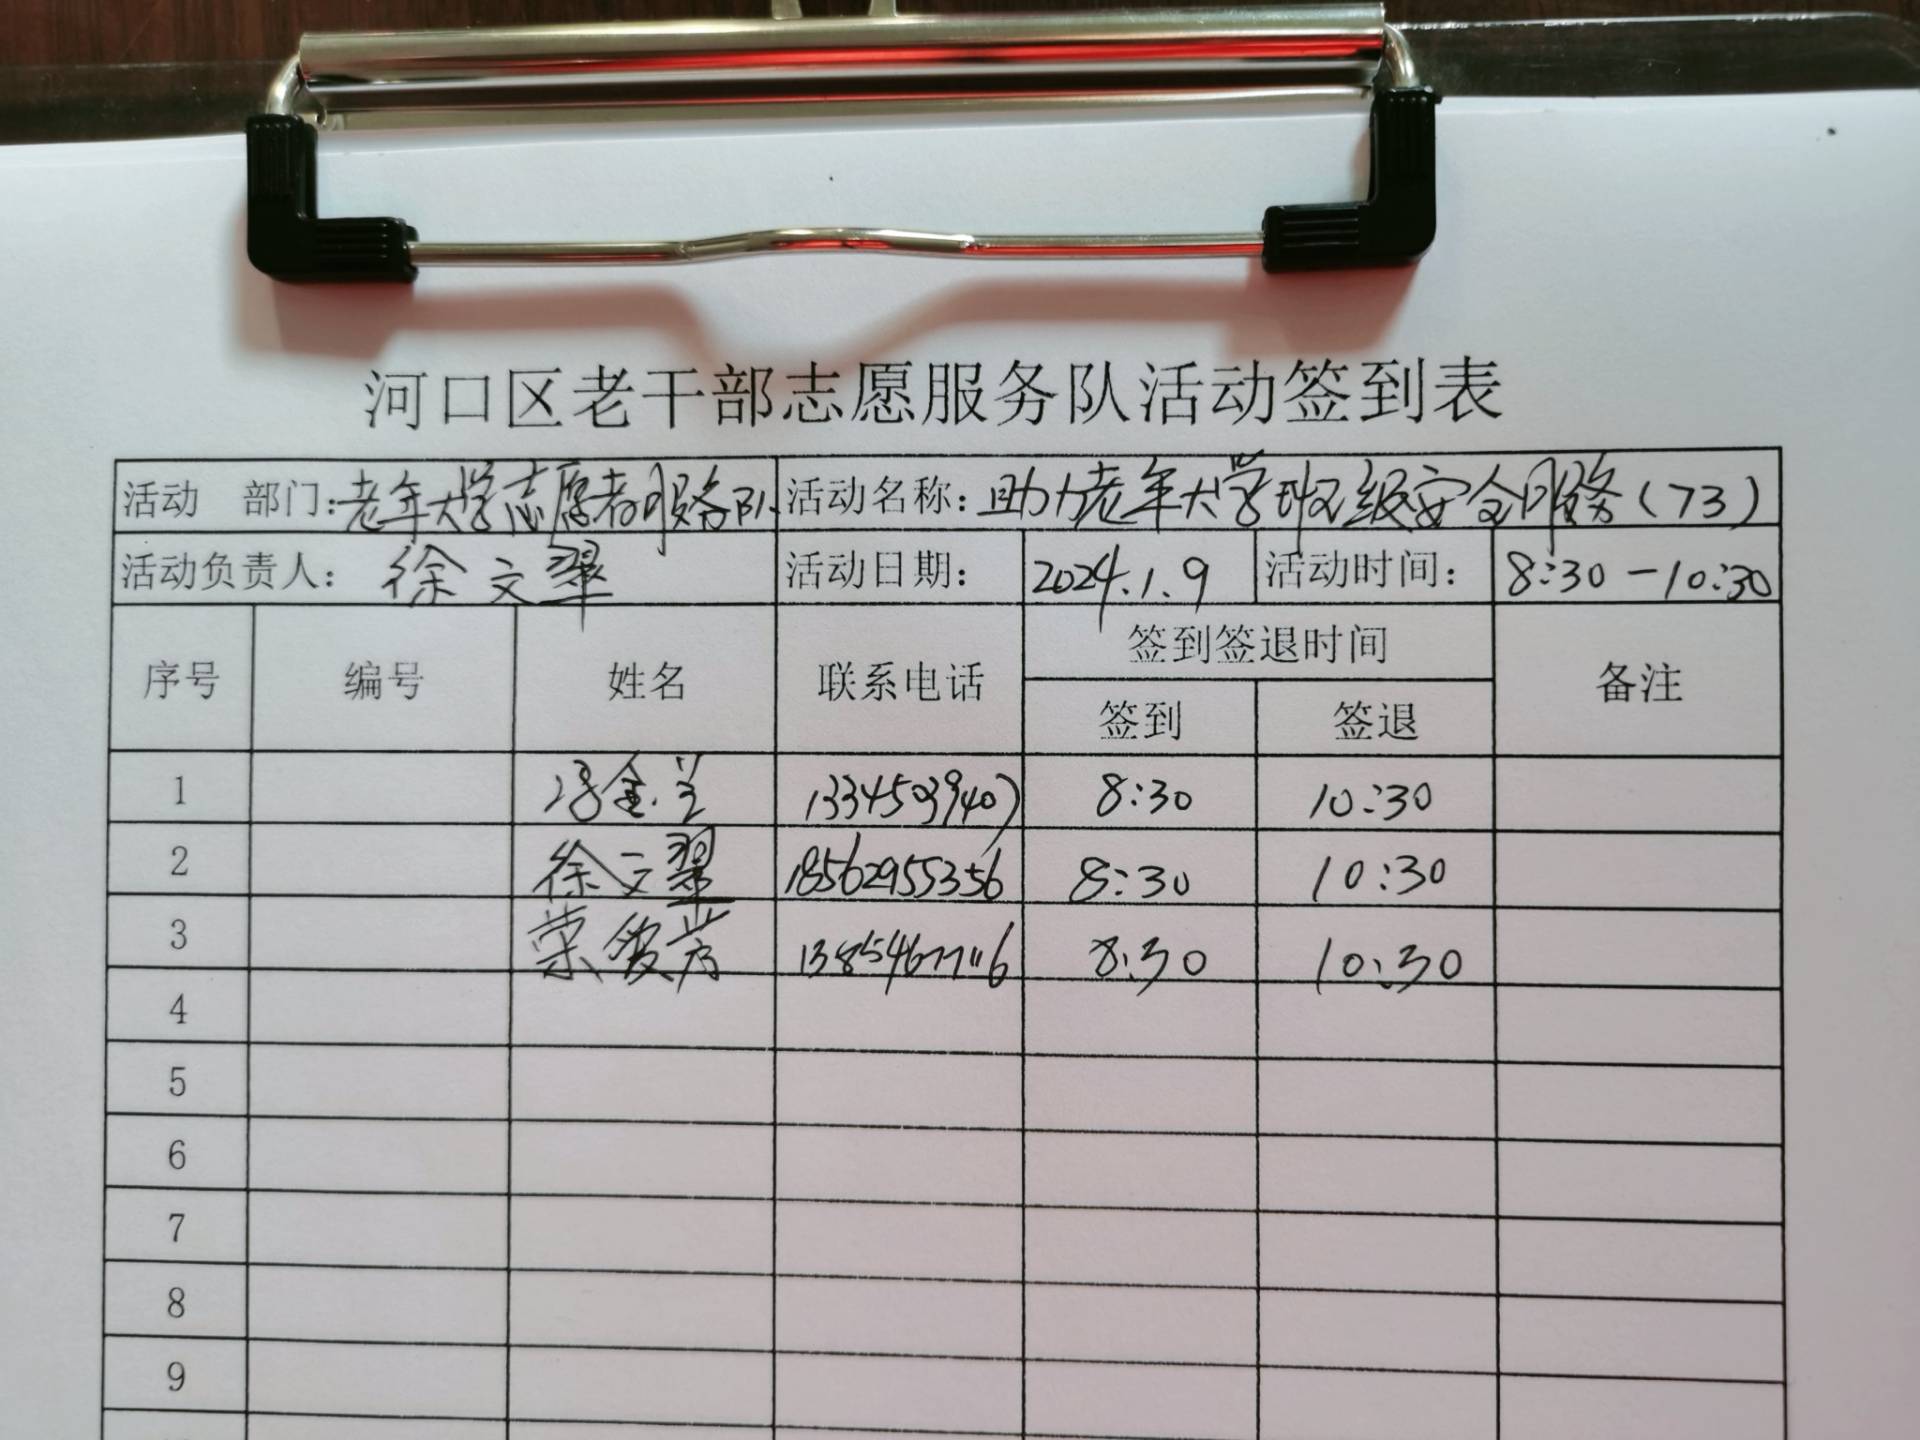 河口区老干部志愿服务队活动签到表
活动 部门:老年大学志愿者服务队 活动名称:助力老年大学班级安全服务(73)
活动负责人: 徐文翠 活动日期: 2024.1.9 活动时间: 8:30-10:30
序号 编号 姓名 联系电话 签到签退时间 备注
签到 签退
1 冯金兰 13345039407 8:30 10:30
2 徐文翠 18562955356 8:30 10:30
3 荣爱芳 13854677116 8:30 10:30
4
5
6
7
8
9